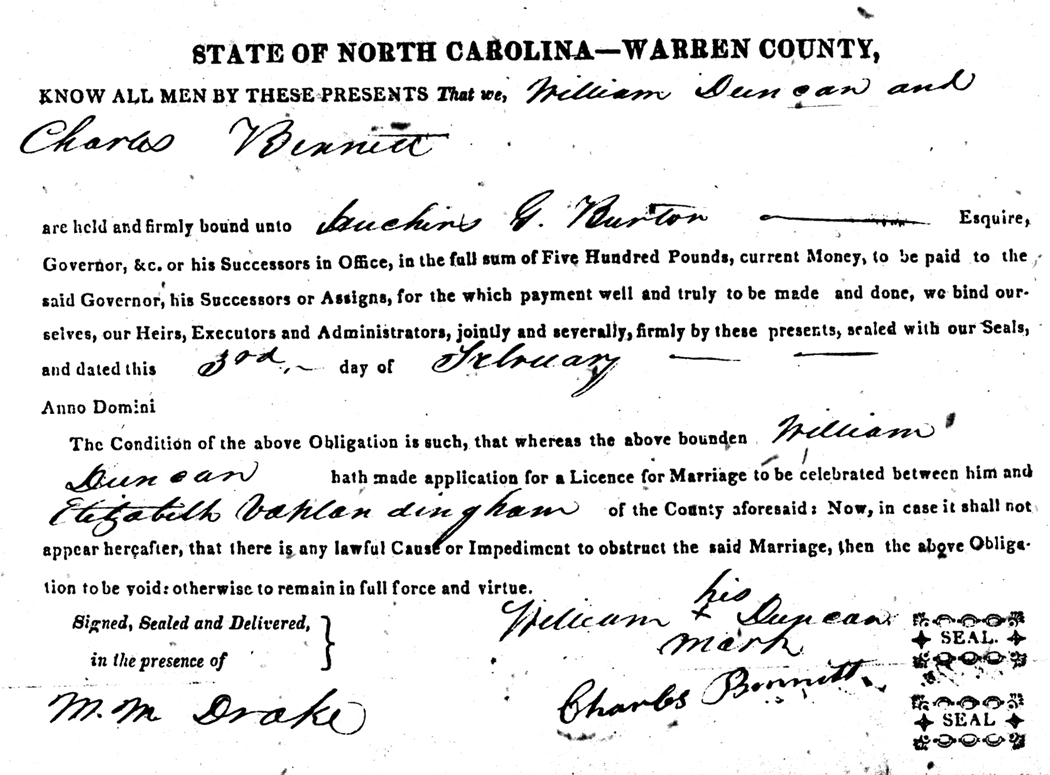 STATE OF NORTH CAROLINA—WARREN COUNTY,
KNOW ALL MEN BY THESE PRESENTS That we, William Duncan and
Charles Bennett
are held and firmly bound unto G. Burton Esquire,
Governor, &c. or his Successors in Office, in the full sum of Five Hundred Pounds, current Money, to be paid to the
said Governor, his Successors or Assigns, for the which payment well and truly to be made and done, we bind our-
selves, our Heirs, Executors and Administrators, jointly and severally, firmly by these presents, sealed with our Seals,
and dated this 3rd day of February
Anno Domini
The Condition of the above Obligation is such, that whereas the above bounden William
Duncan hath made application for a Licence for Marriage to be celebrated between him and
Elizabeth Vahlandingham of the County aforesaid: Now, in case it shall not
appear hereafter, that there is any lawful Cause or Impediment to obstruct the said Marriage, then the above Obliga-
tion to be void: otherwise to remain in full force and virtue.
Signed, Sealed and Delivered,
in the presence of
M. M Drake
his
William x Duncan
mark
SEAL.
Charles Bennett
SEAL